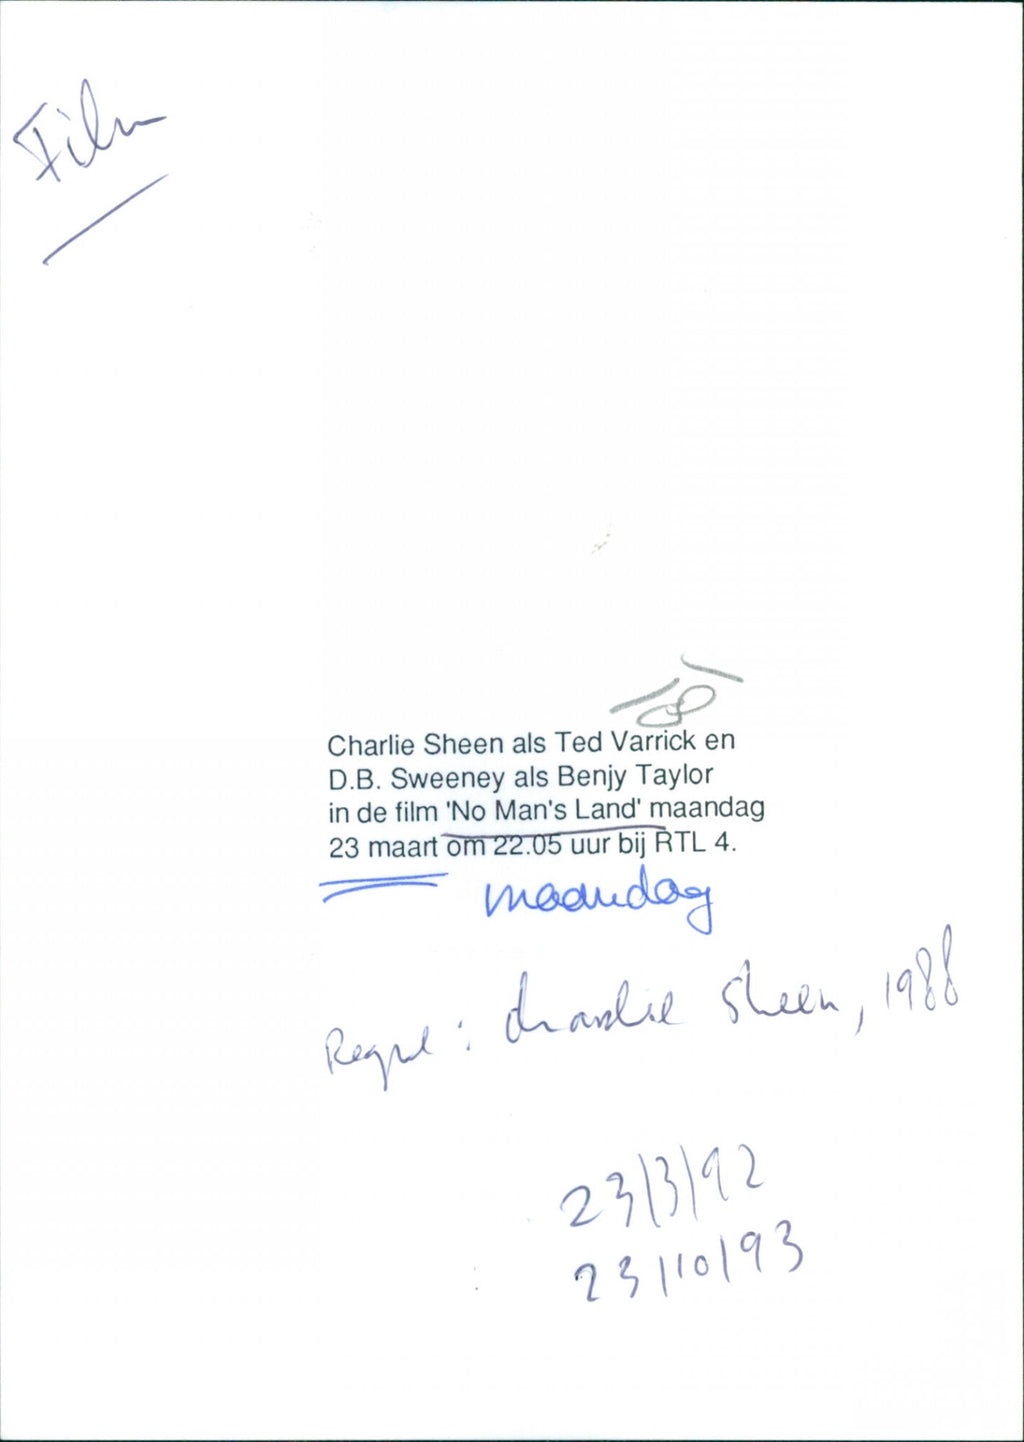 Film
Charlie Sheen als Ted Varrick en
D.B. Sweeney als Benjy Taylor
in de film 'No Man's Land' maandag
23 maart om 22.05 uur bij RTL 4.
maandag
Charlie Sheen, 1988
23/3/92
23/10/93